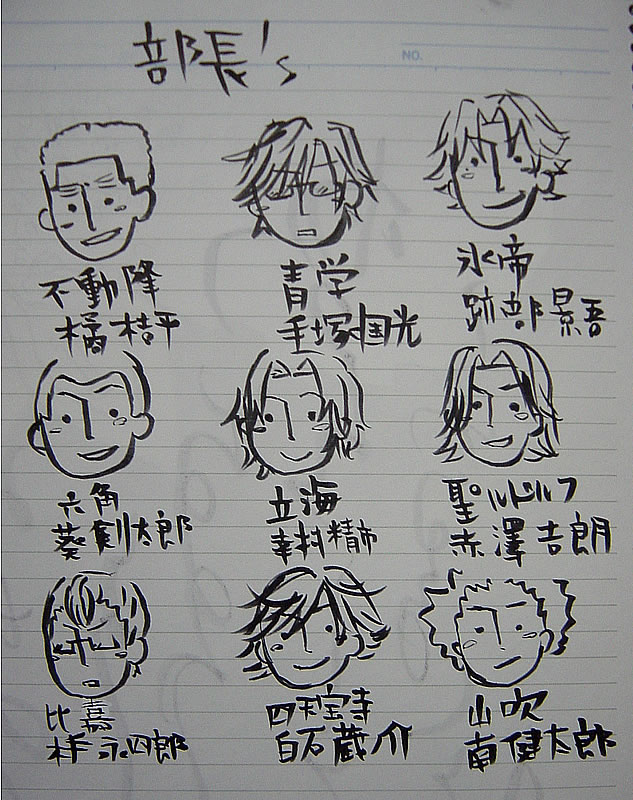 部長's
NO.
不動峰
橘 桔平
青学
手塚国光
氷帝
跡部景吾
六角
葵剣太郎
立海
幸村精市
聖ルドルフ
赤澤吉朗
比嘉
木手永四郎
四天宝寺
白石蔵ノ介
山吹
南健太郎